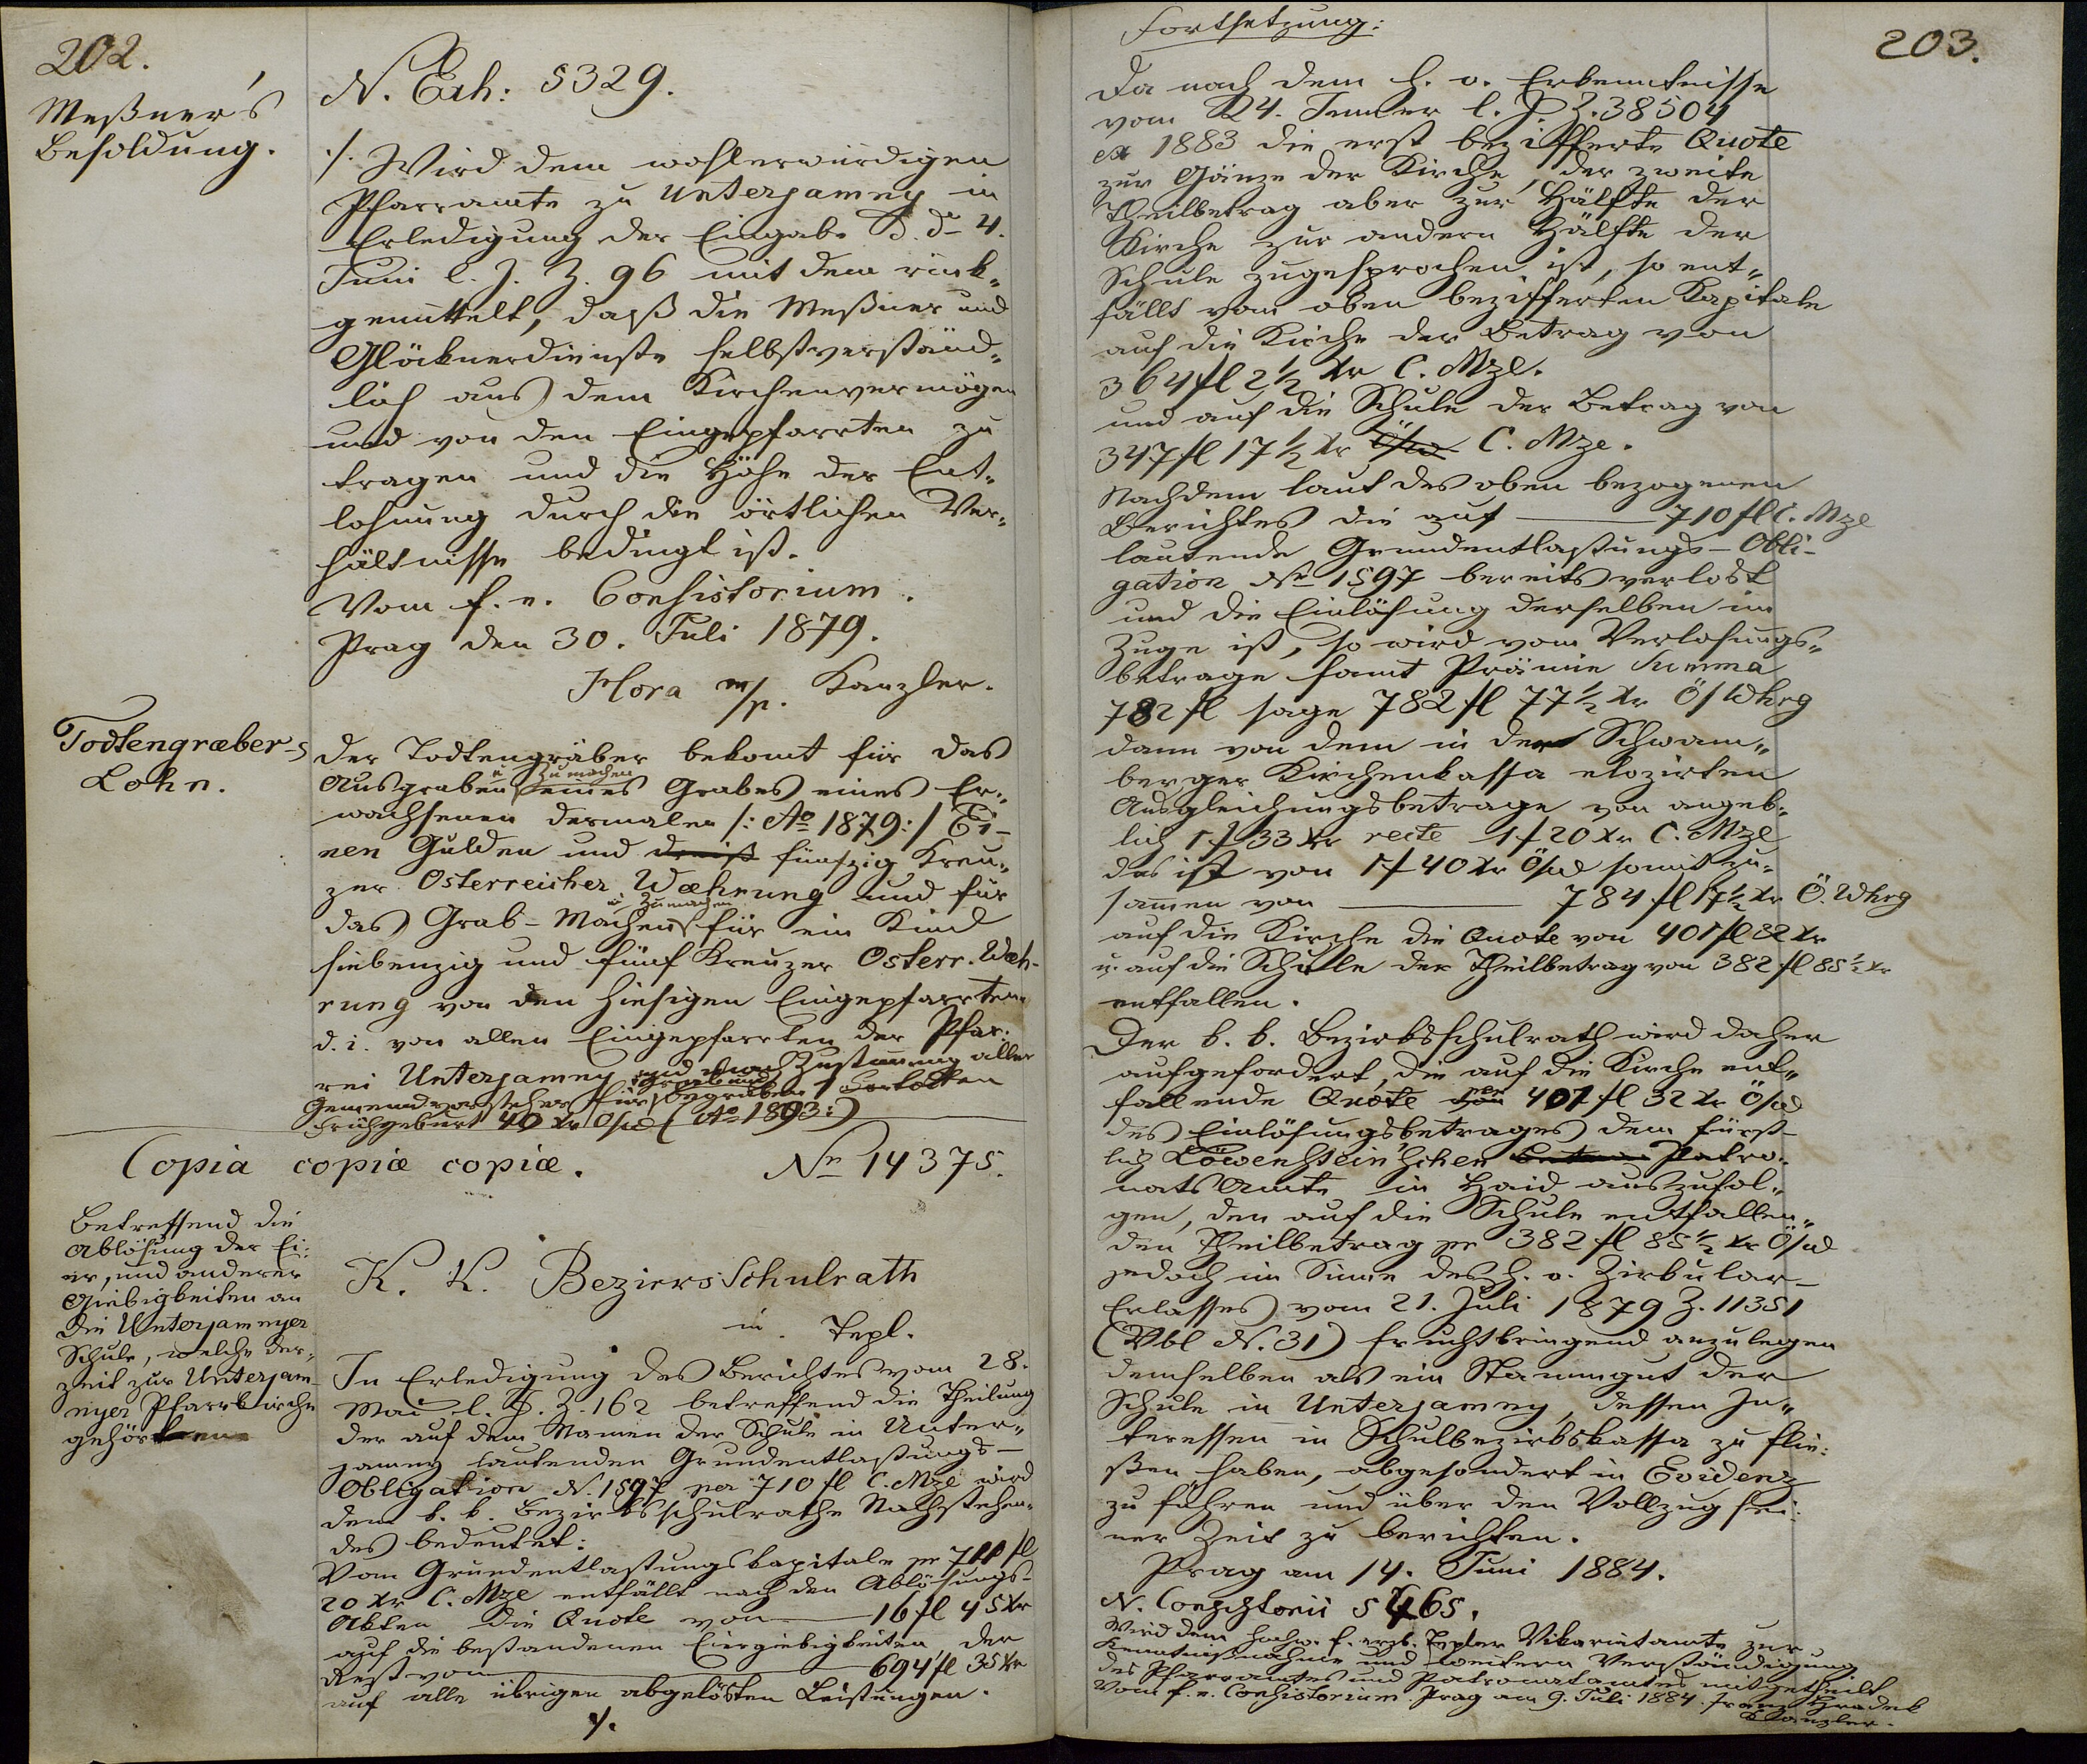 202.
Meßner's
Besoldung.
N. Exh: 5329.
·/. Wird dem wohlerwürdigen
Pfarramte zu Unterjamny in
Erledigung der Eingabe d. d° 4.
Juni l. J. Z. 96 mit dem rück-
gemittelt, daß die Meßner und
Glöcknerdienste selbstverständ-
lich aus dem Kirchenvermögen
und von den Eingepfarrten zu
tragen und die Höhe der Ent-
lohnung durch die örtlichen Ver-
hältnisse bedingt ist.
Vom f. e. Consistorium.
Prag den 30. Juli 1879.
Hora m/p. Kanzler.
Todtengræber-s
Lohn.
Der Todtengräber bekomt für das
Ausgraben u Zumachen eines Grabes eines Er-
wachsenen dermalen /: Ao 1879:/ Ei-
nen Gulden und dreiß fünfzig Kreu-
zer Österreicher Wæhrung und für
das Grab-Machen u Zumachen für ein Kind
siebenzig und fünf Kreuzer Österr. Wæh-
rung von den hiesigen Eingepfarrten
d. i. von allen Eingepfarrten der Pfar-
rei Unterjamny und nach Zustimmung aller
Gemeindevorsteher für Begraben
Frühgeburt 40 Xr Ö/W (Ao 1893:)
Copia copiæ copiæ. Nr 14375.
Betreffend die
Ablösung der Ei-
er, und anderer
Giebigkeiten an
die Unterjamnyer
Schule, welche der-
zeit zur Unterjam-
nyer Pfarrkirche
gehörten
K. K. Bezirks Schulrath
in Tepl.
In Erledigung des Berichtes vom 28.
Mai l. J. Z. 162 betreffend die Theilung
der auf dem Namen der Schule in Unter-
jamny lautenden Grundentlastungs-
Obligation N. 1597 per 710 fl C. Mze wird
dem k. k. Bezirksschulrathe Nachstehen-
des bedeutet:
Vom Grundentlastungskapitale pr 711 fl
20 Xr C. Mze entfällt nach den Ablösungs-
Akten die Quote von — 16 fl 45 Xr
auf die bestandenen Eiergiebigkeiten, der
Rest von — 694 fl 35 Xr
auf alle übrigen abgelösten Leistungen.
·/.
Fortsetzung:
203.
Da nach dem h. o. Erkenntnisse
vom 24. Jenner l. J. Z. 38504
ex 1883 die erst bezifferte Quote
zur Gänze der Kirche, der zweite
Theilbetrag aber zur Hälfte der
Kirche zur andern Hälfte der
Schule zugesprochen ist, so ent-
fällt vom oben bezifferten Kapitale
auf die Kirche der Betrag von
364 fl 2½ Xr C. Mze.
und auf die Schule der Betrag von
347 fl 17½ Xr Ö/W. C. Mze.
Nachdem laut des oben bezogenen
Berichtes die auf — 710 fl C. Mze
lautende Grundentlastungs-Obli-
gation Nr 1597 bereits verlost
und die Einlösung derselben im
Zuge ist, so wird vom Verlosungs-
betrage samt Prämie Summa
782 fl sage 782 fl 77½ Xr Ö/Whrg
dann von dem in der Schwam-
berger Kirchenkassa elozirten
Ausgleichungsbetrage von angeb-
lich 1 f 33 Xr recte 1 f 20 Xr C. Mze
das ist von 1 f 40 Xr Ö/W somit zu-
sammen von — 784 fl 17½ Xr Ö. Whrg
auf die Kirche die Quote von 401 fl 32 Xr
u. auf die Schule der Theilbetrag von 382 fl 85½ Xr
entfallen.
Der k. k. Bezirksschulrath wird daher
aufgefordert, die auf die Kirche ent-
fallende Quote von per 401 fl 32 Xr Ö/W
des Einlösungsbetrages dem fürst-
lich Löwenstein'schen Patro-
nats Amte in Haid auszufol-
gen, den auf die Schule entfallen-
den Theilbetrag pr 382 fl 85½ Xr Ö/W
jedoch im Sinne des h. o. Zirkular-
Erlasses vom 21. Juli 1879 Z. 11351
(Vbl N. 31) fruchtbringend anzulegen
demselben als ein Stammgut der
Schule in Unterjamny, dessen In-
teressen in Schulbezirkskassa zu flie-
ßen haben, abgesondert in Evidenz
zu führen und über den Vollzug sei-
ner Zeit zu berichten.
Prag am 14. Juni 1884.
N. Consistorii 5465.
Wird dem hochw. f. erzb. Tepler Vikariatamte zur
Kenntnißnahme und weitern Verständigung
des Pfarramtes und Patronatamtes mitgetheilt
Vom f. e. Consistorium. Prag am 9. Juli 1884. Franz Hradek
Kanzler.